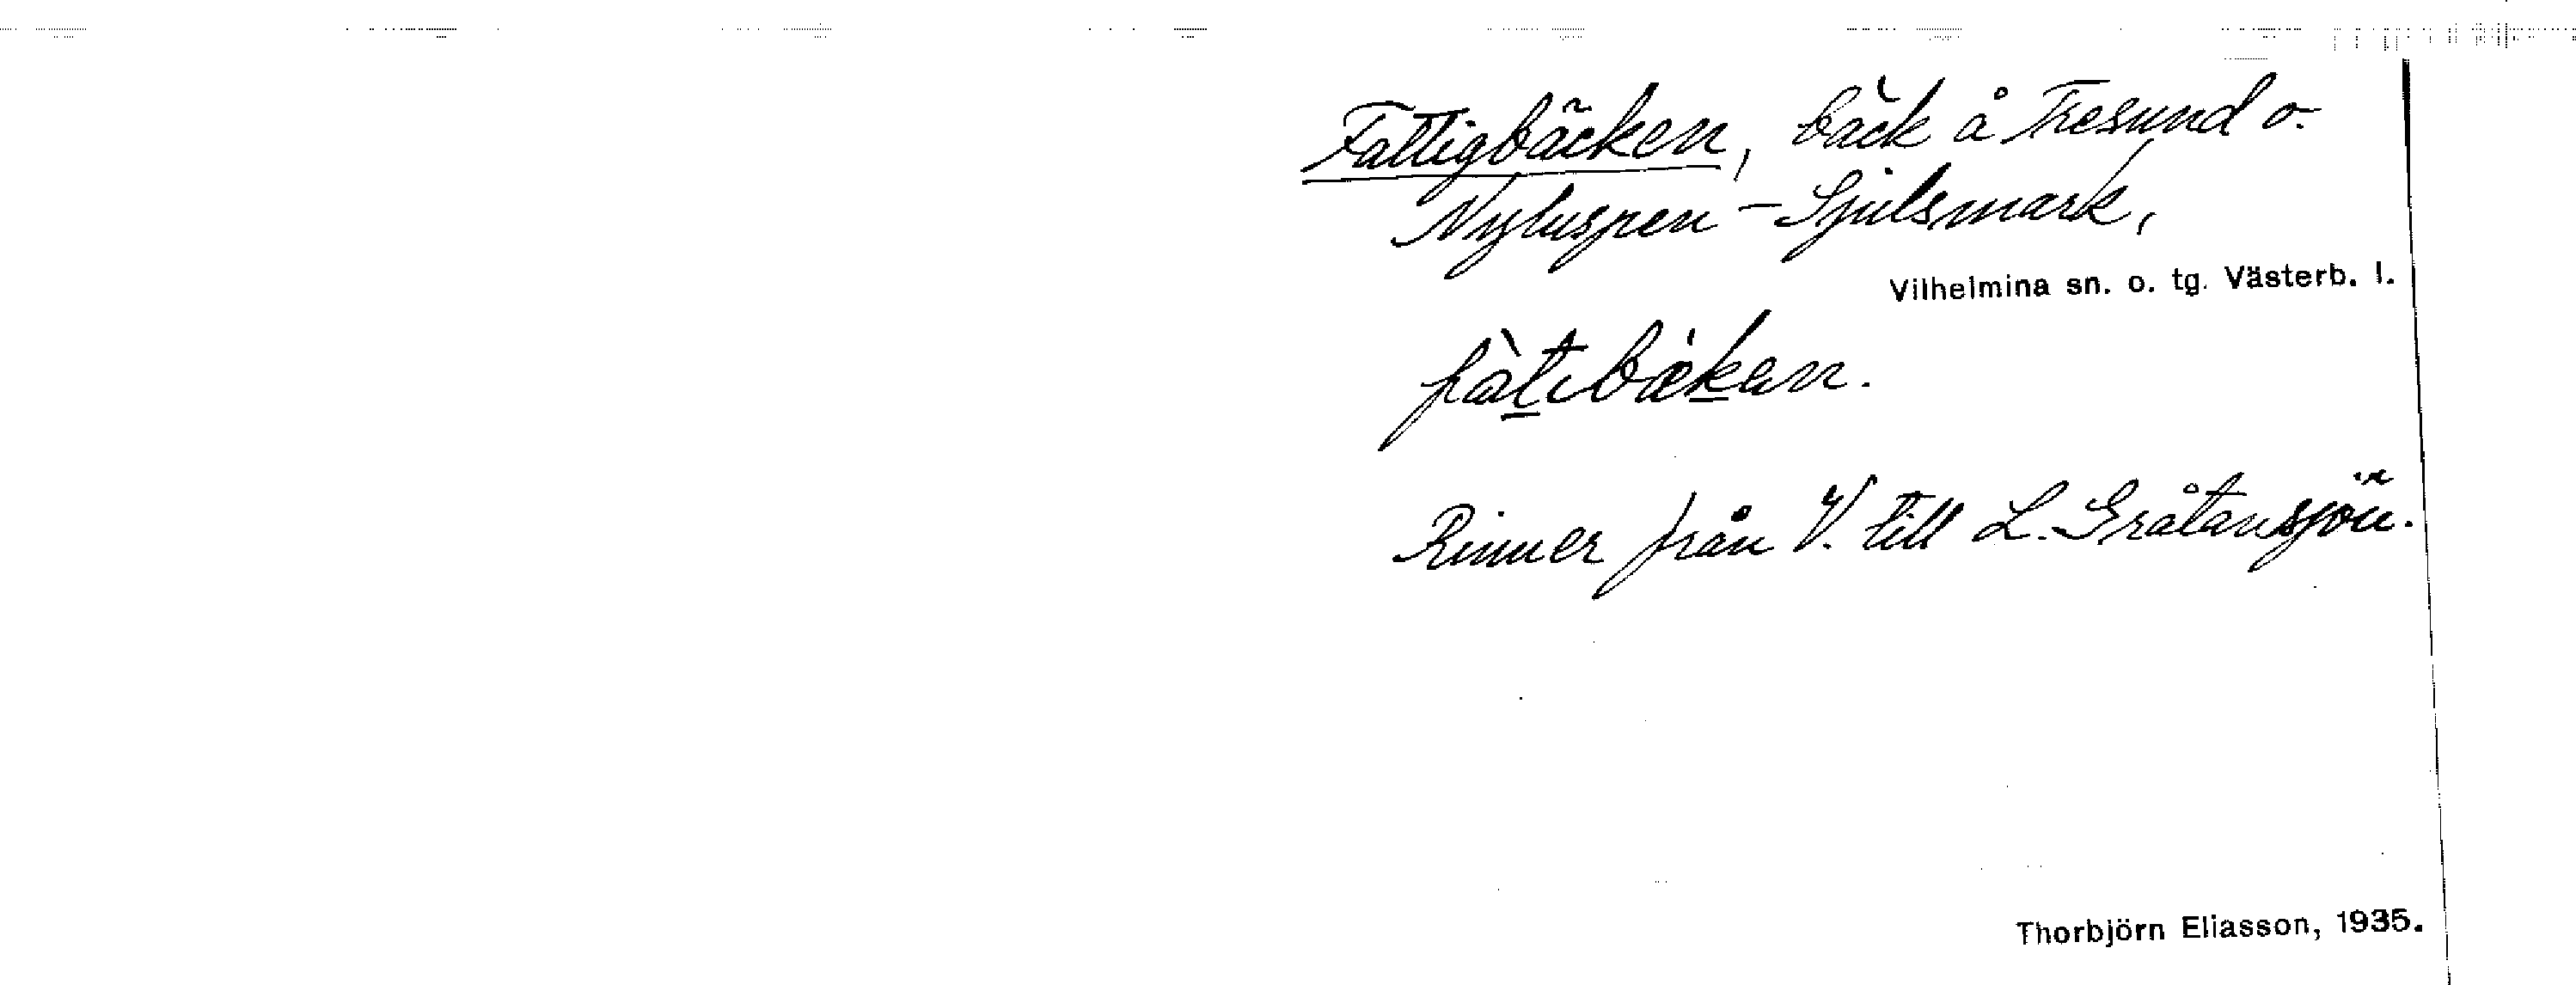 Fattigbäcken, bäck å Tresund o.
Nyluspen - Sjulsmark,
Vilhelmina sn. o. tg. Västerb. l.
fàtibækan.
Rinner från V. till L. Gråtansjön.
Thorbjörn Eliasson, 1935.